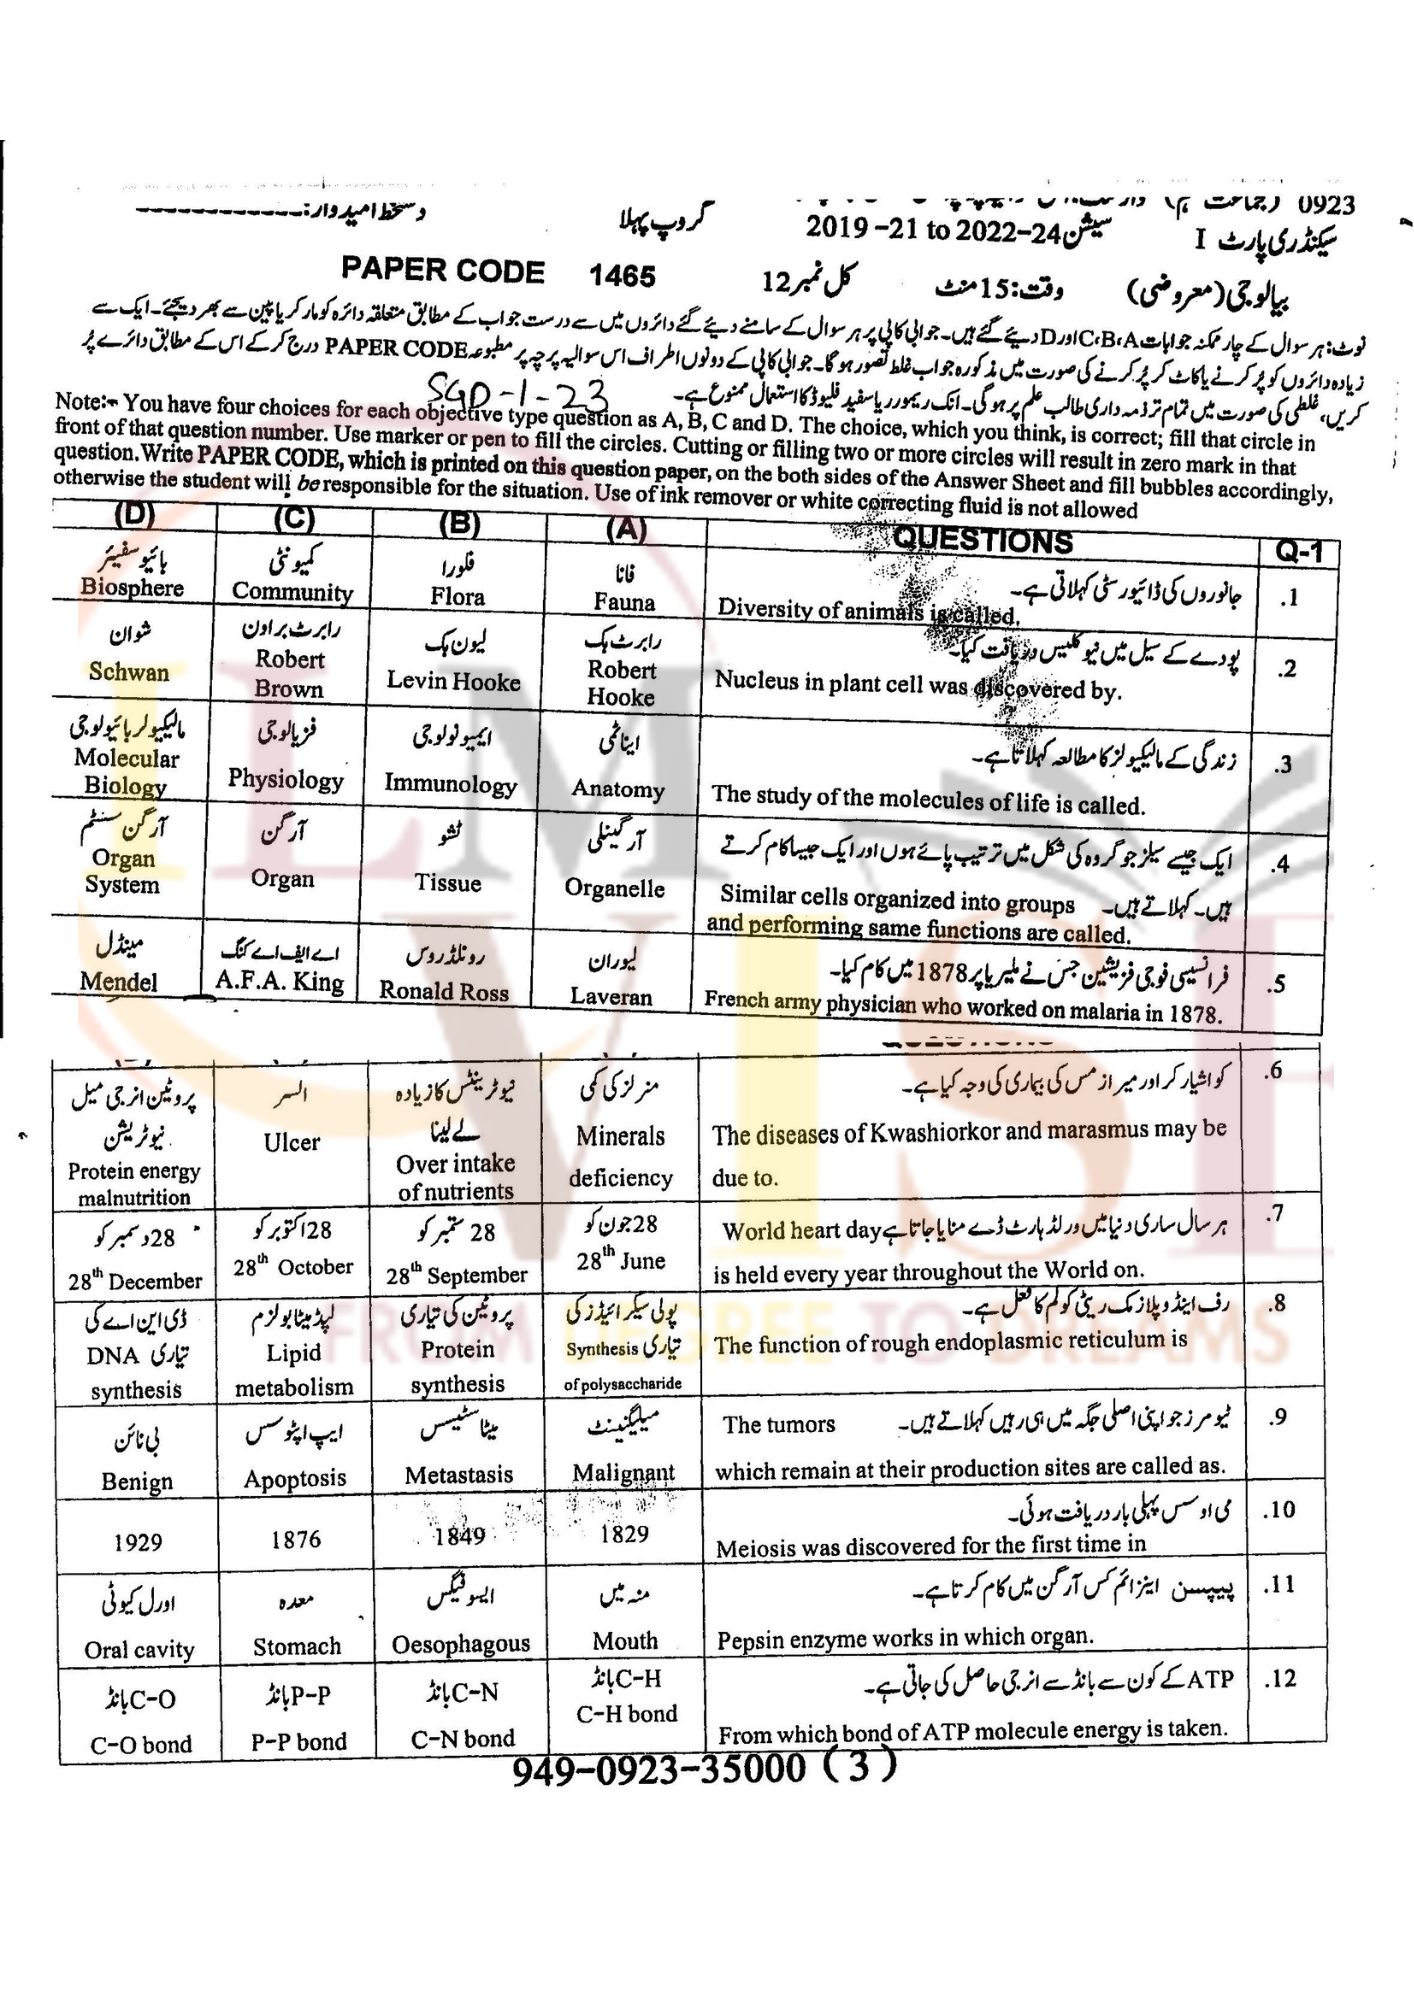 0923 (جماعت نہم)
دستخط امیدوار:
سیکنڈری پارٹ I سیشن 2019-21 to 2022-24 گروپ پہلا
بیالوجی (معروضی) وقت: 15 منٹ کل نمبر 12 PAPER CODE 1465
نوٹ: ہر سوال کے چار ممکنہ جوابات A، B، C اور D دیئے گئے ہیں۔ جوابی کاپی پر ہر سوال کے سامنے دیئے گئے دائروں میں سے درست جواب کے مطابق متعلقہ دائرہ کو مارکر یا پین سے بھر دیجئے۔ ایک سے
زیادہ دائروں کو پُر کرنے یا کاٹ کر پُر کرنے کی صورت میں مذکورہ جواب غلط تصور ہوگا۔ جوابی کاپی کے دونوں اطراف اس سوالیہ پرچہ پر مطبوعہ PAPER CODE درج کر کے اس کے مطابق دائرے پُر
کریں، غلطی کی صورت میں تمام تر ذمہ داری طالب علم پر ہوگی۔ انک ریموور یا سفید فلیوڈ کا استعمال ممنوع ہے۔
SGD-1-23
Note:- You have four choices for each objective type question as A, B, C and D. The choice, which you think, is correct; fill that circle in
front of that question number. Use marker or pen to fill the circles. Cutting or filling two or more circles will result in zero mark in that
question. Write PAPER CODE, which is printed on this question paper, on the both sides of the Answer Sheet and fill bubbles accordingly,
otherwise the student will be responsible for the situation. Use of ink remover or white correcting fluid is not allowed
(D) (C) (B) (A) QUESTIONS Q-1
بائیوسفیئر کمیونٹی فلورا فانا جانوروں کی ڈائیورسٹی کہلاتی ہے۔ .1
Biosphere Community Flora Fauna Diversity of animals is called.
شوان رابرٹ براون لیون ہک رابرٹ ہک پودے کے سیل میں نیوکلیس دریافت کیا۔ .2
Schwan Robert Brown Levin Hooke Robert Hooke Nucleus in plant cell was discovered by.
مالیکیولر بائیولوجی فزیالوجی ایمیونولوجی ایناٹمی زندگی کے مالیکیولز کا مطالعہ کہلاتا ہے۔ .3
Molecular Biology Physiology Immunology Anatomy The study of the molecules of life is called.
آرگن سسٹم آرگن ٹشو آرگینلی ایک جیسے سیلز جو گروہ کی شکل میں ترتیب پائے ہوں اور ایک جیسا کام کرتے .4
ہیں۔ کہلاتے ہیں۔ Similar cells organized into groups
Organ System Organ Tissue Organelle and performing same functions are called.
مینڈل اے ایف اے کنگ رونلڈ روس لیوران فرانسیسی فوجی فزیشین جس نے ملیریا پر 1878 میں کام کیا۔ .5
Mendel A.F.A. King Ronald Ross Laveran French army physician who worked on malaria in 1878.
پروٹین انرجی میل نیوٹریشن السر نیوٹرینٹس کا زیادہ لے لینا منرلز کی کمی کواشیارکر اور میرازمس کی بیماری کی وجہ کیا ہے۔ .6
Protein energy malnutrition Ulcer Over intake of nutrients Minerals deficiency The diseases of Kwashiorkor and marasmus may be
due to.
28 دسمبر کو 28 اکتوبر کو 28 ستمبر کو 28 جون کو ہر سال ساری دنیا میں ورلڈ ہارٹ ڈے منایا جاتا ہے World heart day .7
28th December 28th October 28th September 28th June is held every year throughout the World on.
ڈی این اے کی تیاری لپڈ میٹابولزم پروٹین کی تیاری پولی سیکرائیڈز کی تیاری رف اینڈوپلازمک ریٹی کولم کا فعل ہے۔ .8
DNA synthesis Lipid metabolism Protein synthesis Synthesis of polysaccharide The function of rough endoplasmic reticulum is
بی نائن ایپ اپٹوسس میٹاسٹیسس میلیگنینٹ ٹیومرز جو اپنی اصلی جگہ میں ہی رہیں کہلاتے ہیں۔ The tumors .9
Benign Apoptosis Metastasis Malignant which remain at their production sites are called as.
می اوسس پہلی بار دریافت ہوئی۔ .10
1929 1876 1849 1829 Meiosis was discovered for the first time in
اورل کیوٹی معدہ ایسوفیگس منہ میں پیپسن اینزائم کس آرگن میں کام کرتا ہے۔ .11
Oral cavity Stomach Oesophagous Mouth Pepsin enzyme works in which organ.
C-O بانڈ P-P بانڈ C-N بانڈ C-H بانڈ ATP کے کون سے بانڈ سے انرجی حاصل کی جاتی ہے۔ .12
C-O bond P-P bond C-N bond C-H bond From which bond of ATP molecule energy is taken.
949-0923-35000 (3)
ILM
VISI
FROM DEGREE TO DREAMS